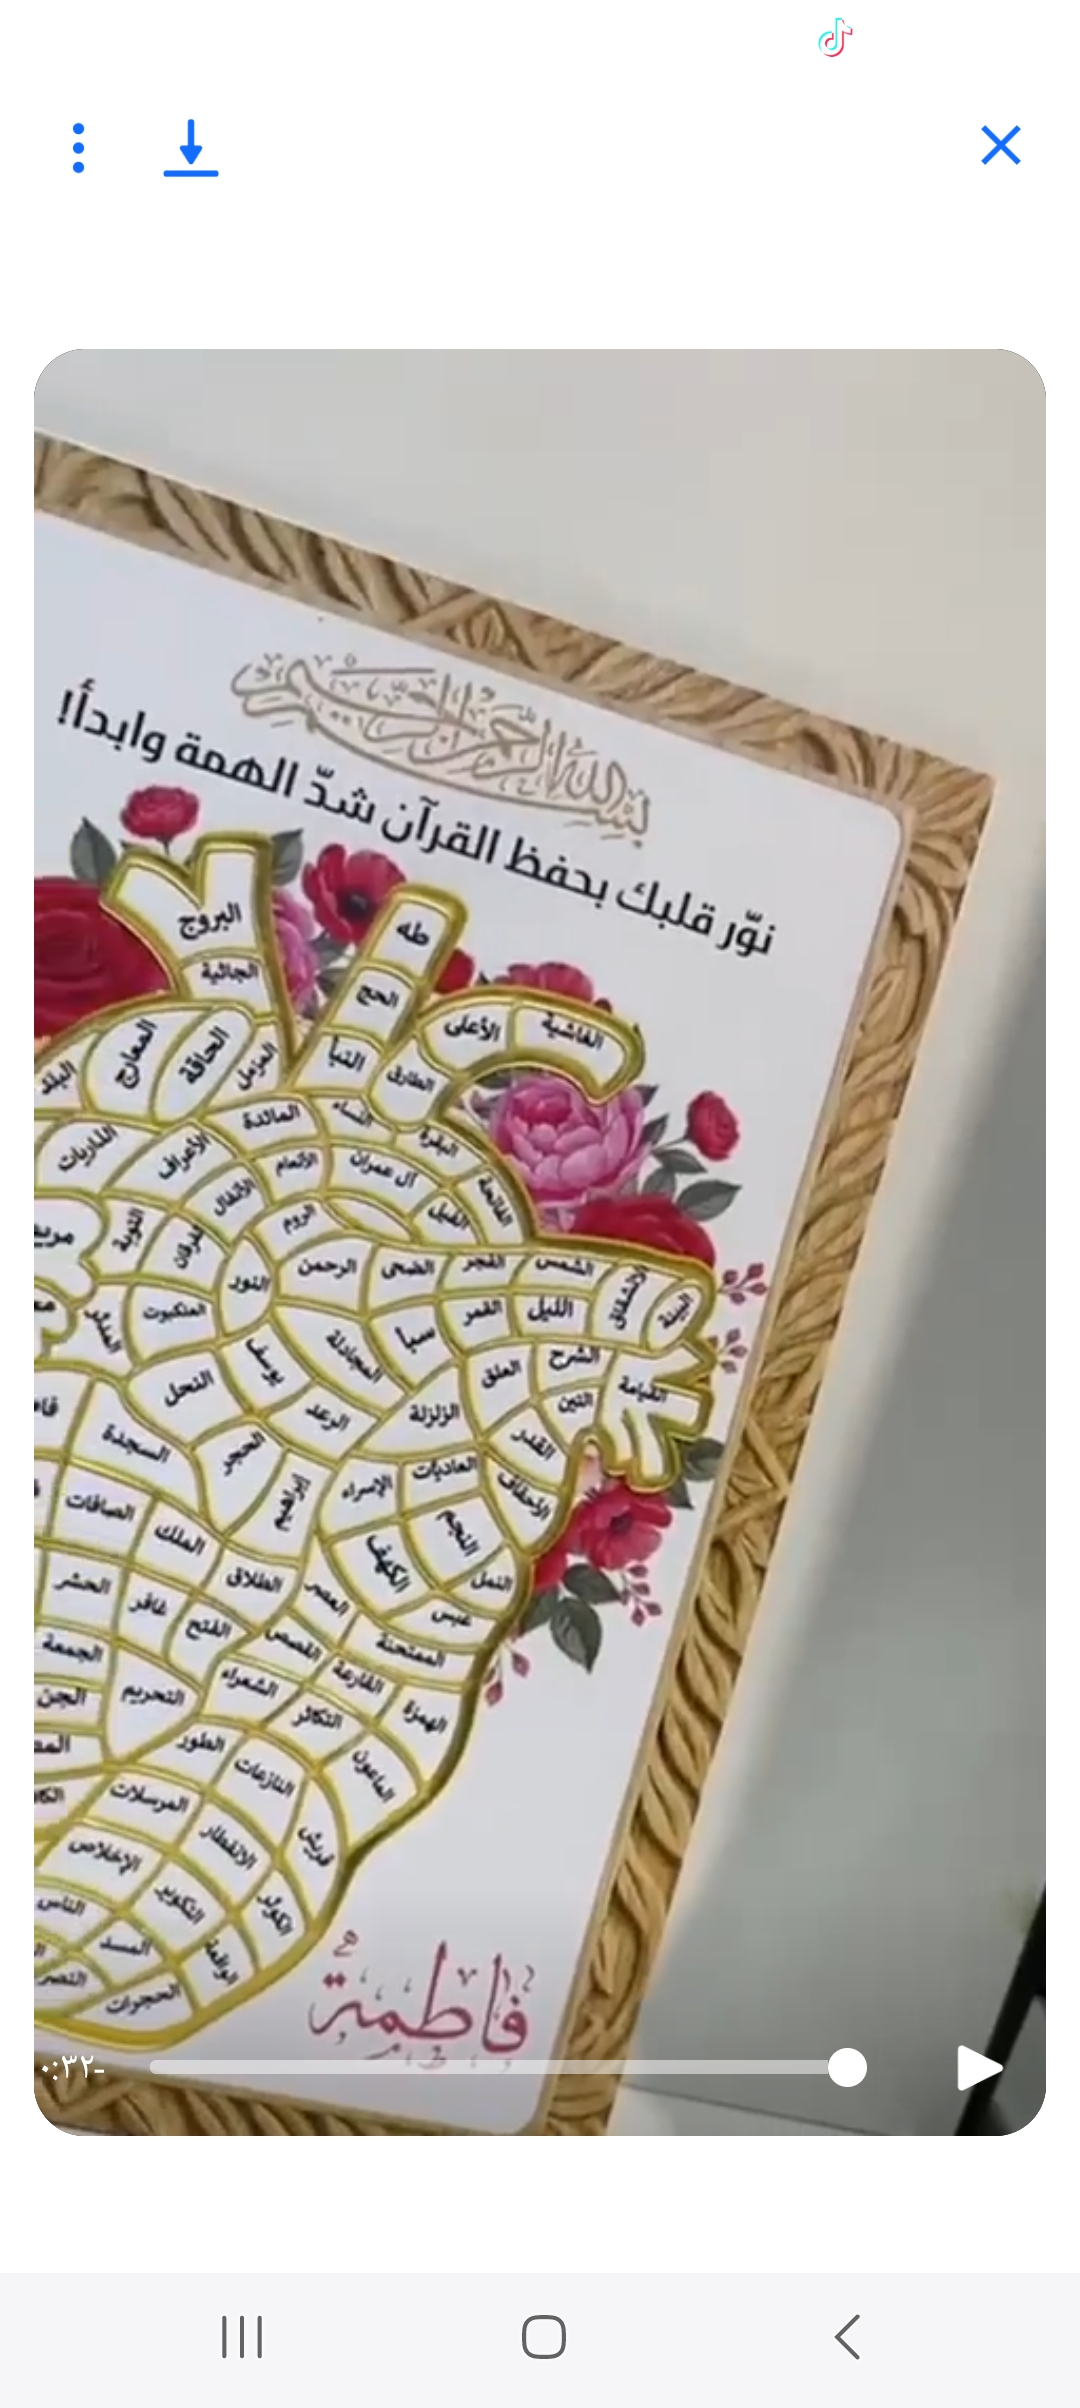 بسم الله الرحمن الرحيم
نوّر قلبك بحفظ القرآن شدّ الهمة وابدأ!
البروج
طه
الجاثية
الحج
الأعلى
الغاشية
المعارج
الحاقة
المزمل
النبأ
الطارق
البلد
المائدة
النساء
البقرة
الذاريات
الأعراف
الأنعام
آل عمران
الفاتحة
الأنفال
الفيل
التوبة
الفرقان
الروم
مريم
النور
الرحمن
الضحى
الفجر
الشمس
الانشقاق
البينة
المدثر
العنكبوت
سبأ
القمر
الليل
المجادلة
يوسف
العلق
الشرح
القيامة
النحل
الرعد
الزلزلة
التين
السجدة
الحجر
القدر
إبراهيم
الإسراء
العاديات
الأحقاف
الصافات
الملك
النجم
الكهف
النمل
الحشر
غافر
الطلاق
العصر
عبس
الفتح
القصص
الممتحنة
الجمعة
القارعة
الجن
التحريم
الشعراء
التكاثر
الهمزة
الطور
النازعات
الماعون
المرسلات
الانفطار
قريش
الإخلاص
التكوير
الكوثر
الناس
المسد
الواقعة
النصر
الحجرات
فاطمة
-٠:٣٢